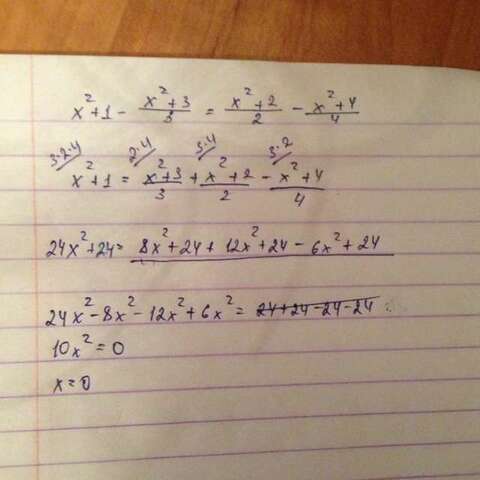 x²+1 - (x²+3)/3 = (x²+2)/2 - (x²+4)/4
3·2·4 2·4 3·4 3·2
x²+1 = (x²+3)/3 + (x²+2)/2 - (x²+4)/4
24x²+24 = 8x²+24+12x²+24-6x²+24
24x²-8x²-12x²+6x² = 24+24-24-24
10x²=0
x=0